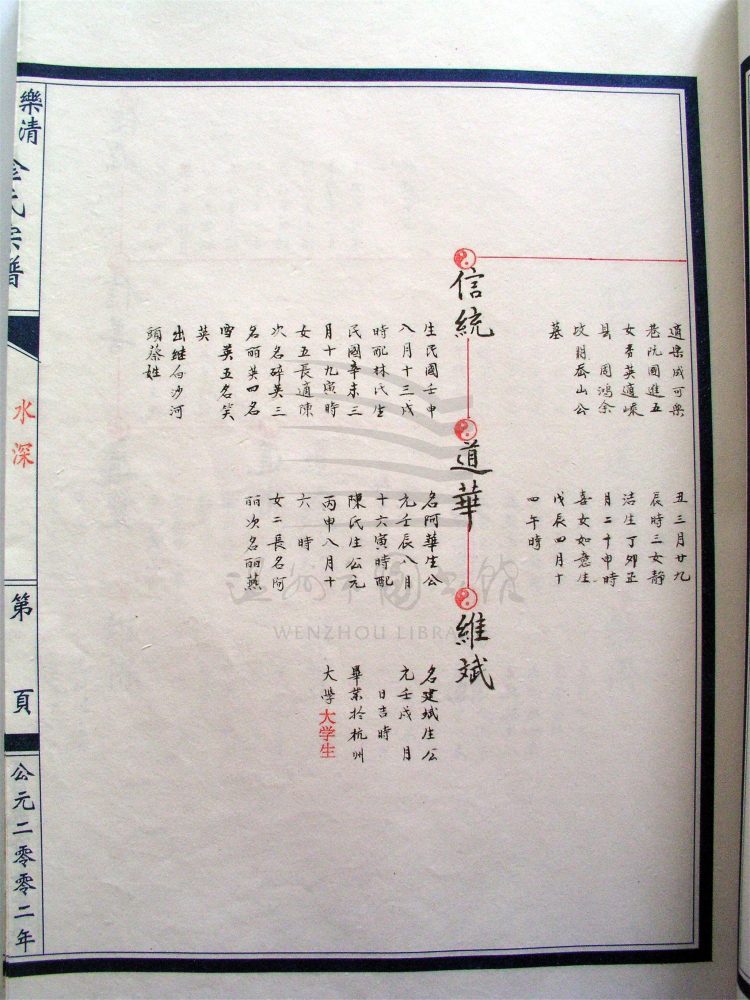 道樂成可樂
巷阮國進五
女香英適嵊
县 周鴻余
故葬岙山公
墓
丑三月廿九
辰時三女靜
洁生丁卯五
月二十申時
喜女如意生
戊辰四月十
四午時
信統
生民國壬申
八月十三戌
時配林氏生
民國辛未三
月十九寅時
女五長適陳
次名碎英三
名丽英四名
雪英五名笑
英
出继白沙河
頭蔡姓
道華
名阿華生公
元壬辰八月
十六寅時配
陳氏生公元
丙申八月十
六 時
女二長名阿
丽次名丽燕
維斌
名建斌生公
元壬戌 月
日吉時
畢業於杭州
大學大学生
樂清 金氏宗譜
水深
第 頁
公元二零零二年
温州市圖書館
WENZHOU LIBRARY